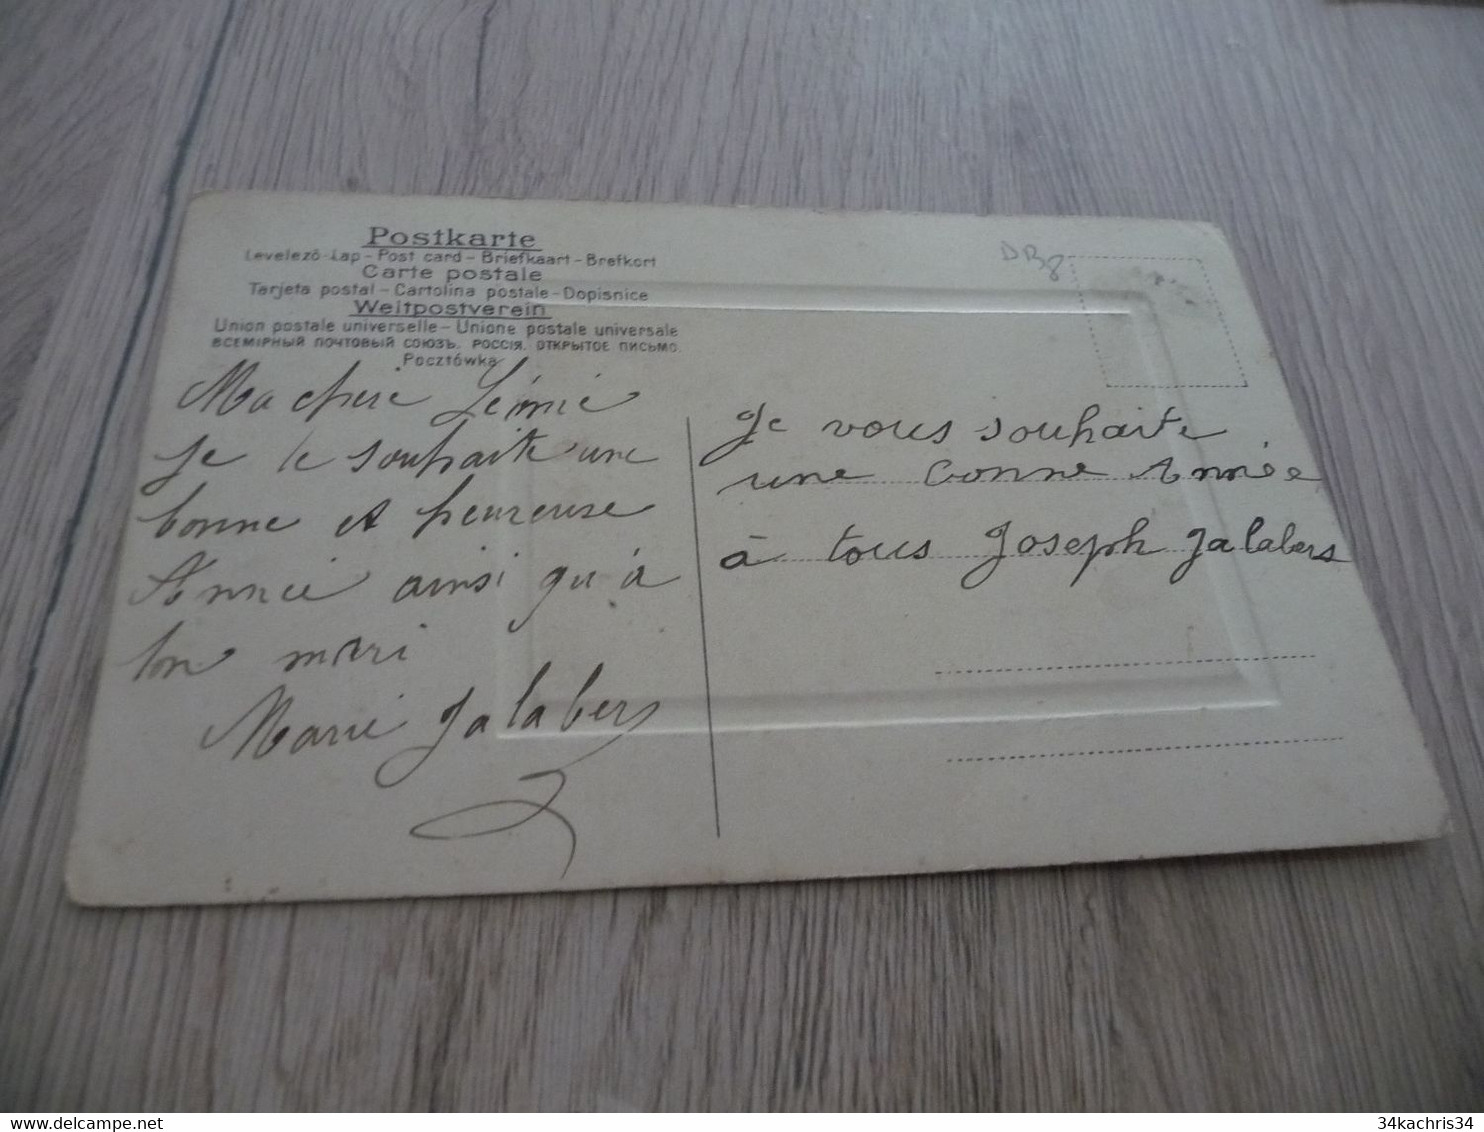 Postkarte
Levelezö-Lap – Post card – Briefkaart – Brefkort
Carte postale
Tarjeta postal – Cartolina postale – Dopisnice
Weltpostverein
Union postale universelle – Unione postale universale
ВСЕМІРНЫЙ ПОЧТОВЫЙ СОЮЗЪ. РОССІЯ. ОТКРЫТОЕ ПИСЬМО.
Pocztówka
Ma chere
Je te souhaite une
bonne et heureuse
Année ainsi qu'à
ton mari
Marie Jalabers
Je vous souhaite
une bonne Année
à tous Joseph Jalabers
34kachris34